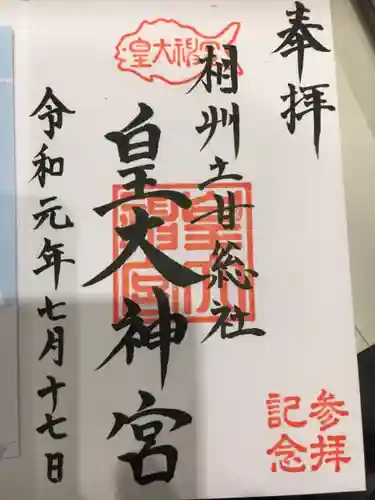 奉拝
相州土甘総社
皇大神宮
令和元年七月十七日
皇大神宮
参拝
記念